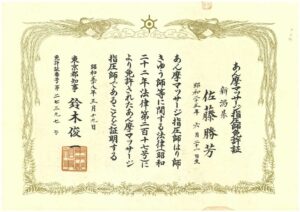 あん摩マッサージ指圧師免許証
新潟県
佐藤勝芳
あん摩マッサージ指圧師はり師
きゅう師等に関する法律(昭和
二十二年法律第二百十七号)に
より免許されたあん摩マッサージ
指圧師であることを証明する
東京都知事 鈴木俊一